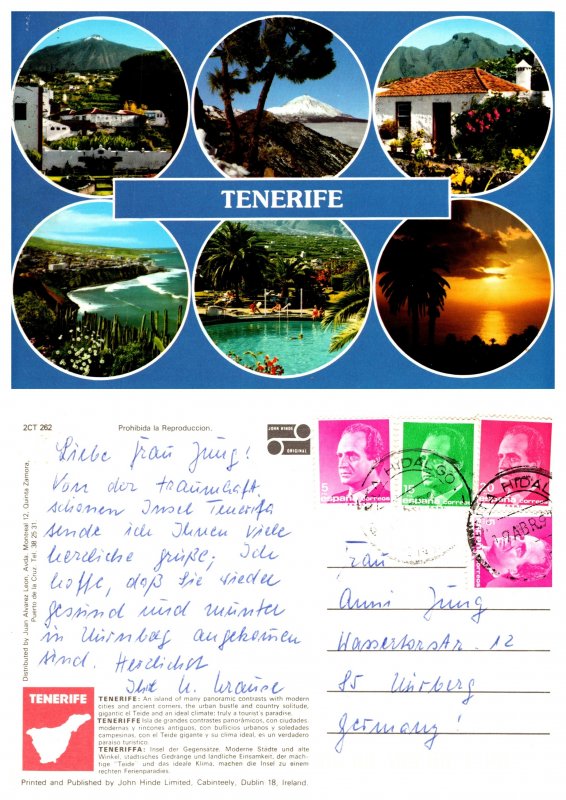 TENERIFE
2CT 262
Prohibida la Reproduccion.
JOHN HINDE
ORIGINAL
Distributed by Juan Alvarez Leon, Avda. Montreal 12, Quinta Zamora,
Puerto de la Cruz. Tel. 38 25 31
Liebe Frau Jung!
Von der traumhaft
schönen Insel Tenerifa
sende ich Ihnen viele
herzliche Grüße, Ich
hoffe, daß Sie wieder
gesund und munter
in Nürnberg angekommen
sind. Herzlichst
Ihre Krause
5
españa correos
15
españa correos
españa correos
5
españa correos
HIDALGO
HIDAL
ABR
Frau
Anni Jung
Wassertorstr. 12
85 Nürnberg
Germany!
TENERIFE
TENERIFE: An island of many panoramic contrasts with modern
cities and ancient corners, the urban bustle and country solitude,
gigantic el Teide and an ideal climate; truly a tourist's paradise.
TENERIFFE Isla de grandes contrastes panorámicos, con ciudades
modernas y rincones antiguos, con bullicios urbanos y soledades
campesinas, con el Teide gigante y su clima ideal, es un verdadero
paraiso turistico.
TENERIFFA: Insel der Gegensätze. Moderne Städte und alte
Winkel, städtisches Gedränge und ländliche Einsamkeit, der mäch-
tige "Teide" und das ideale Klima, machen die Insel zu einem
rechten Ferienparadies.
Printed and Published by John Hinde Limited, Cabinteely, Dublin 18, Ireland.